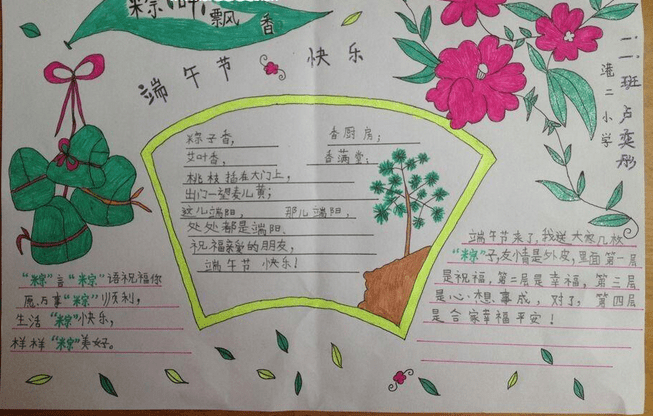 粽叶飘香
端午节快乐
二二班 卢奕彤
港二小学
粽子香， 香厨房；
艾叶香， 香满堂；
桃枝插在大门上，
出门一望麦儿黄；
这儿端阳， 那儿端阳，
处处都是端阳、
祝福亲爱的朋友，
端午节快乐！
“粽”言“粽”语祝福你
愿万事“粽”顺利，
生活“粽”快乐，
样样“粽”美好。
端午节来了，我送大家几枚
“粽”子，友情是外皮，里面第一层
是祝福，第二层是幸福，第三层
是心想事成，对了，第四层
是合家幸福平安！